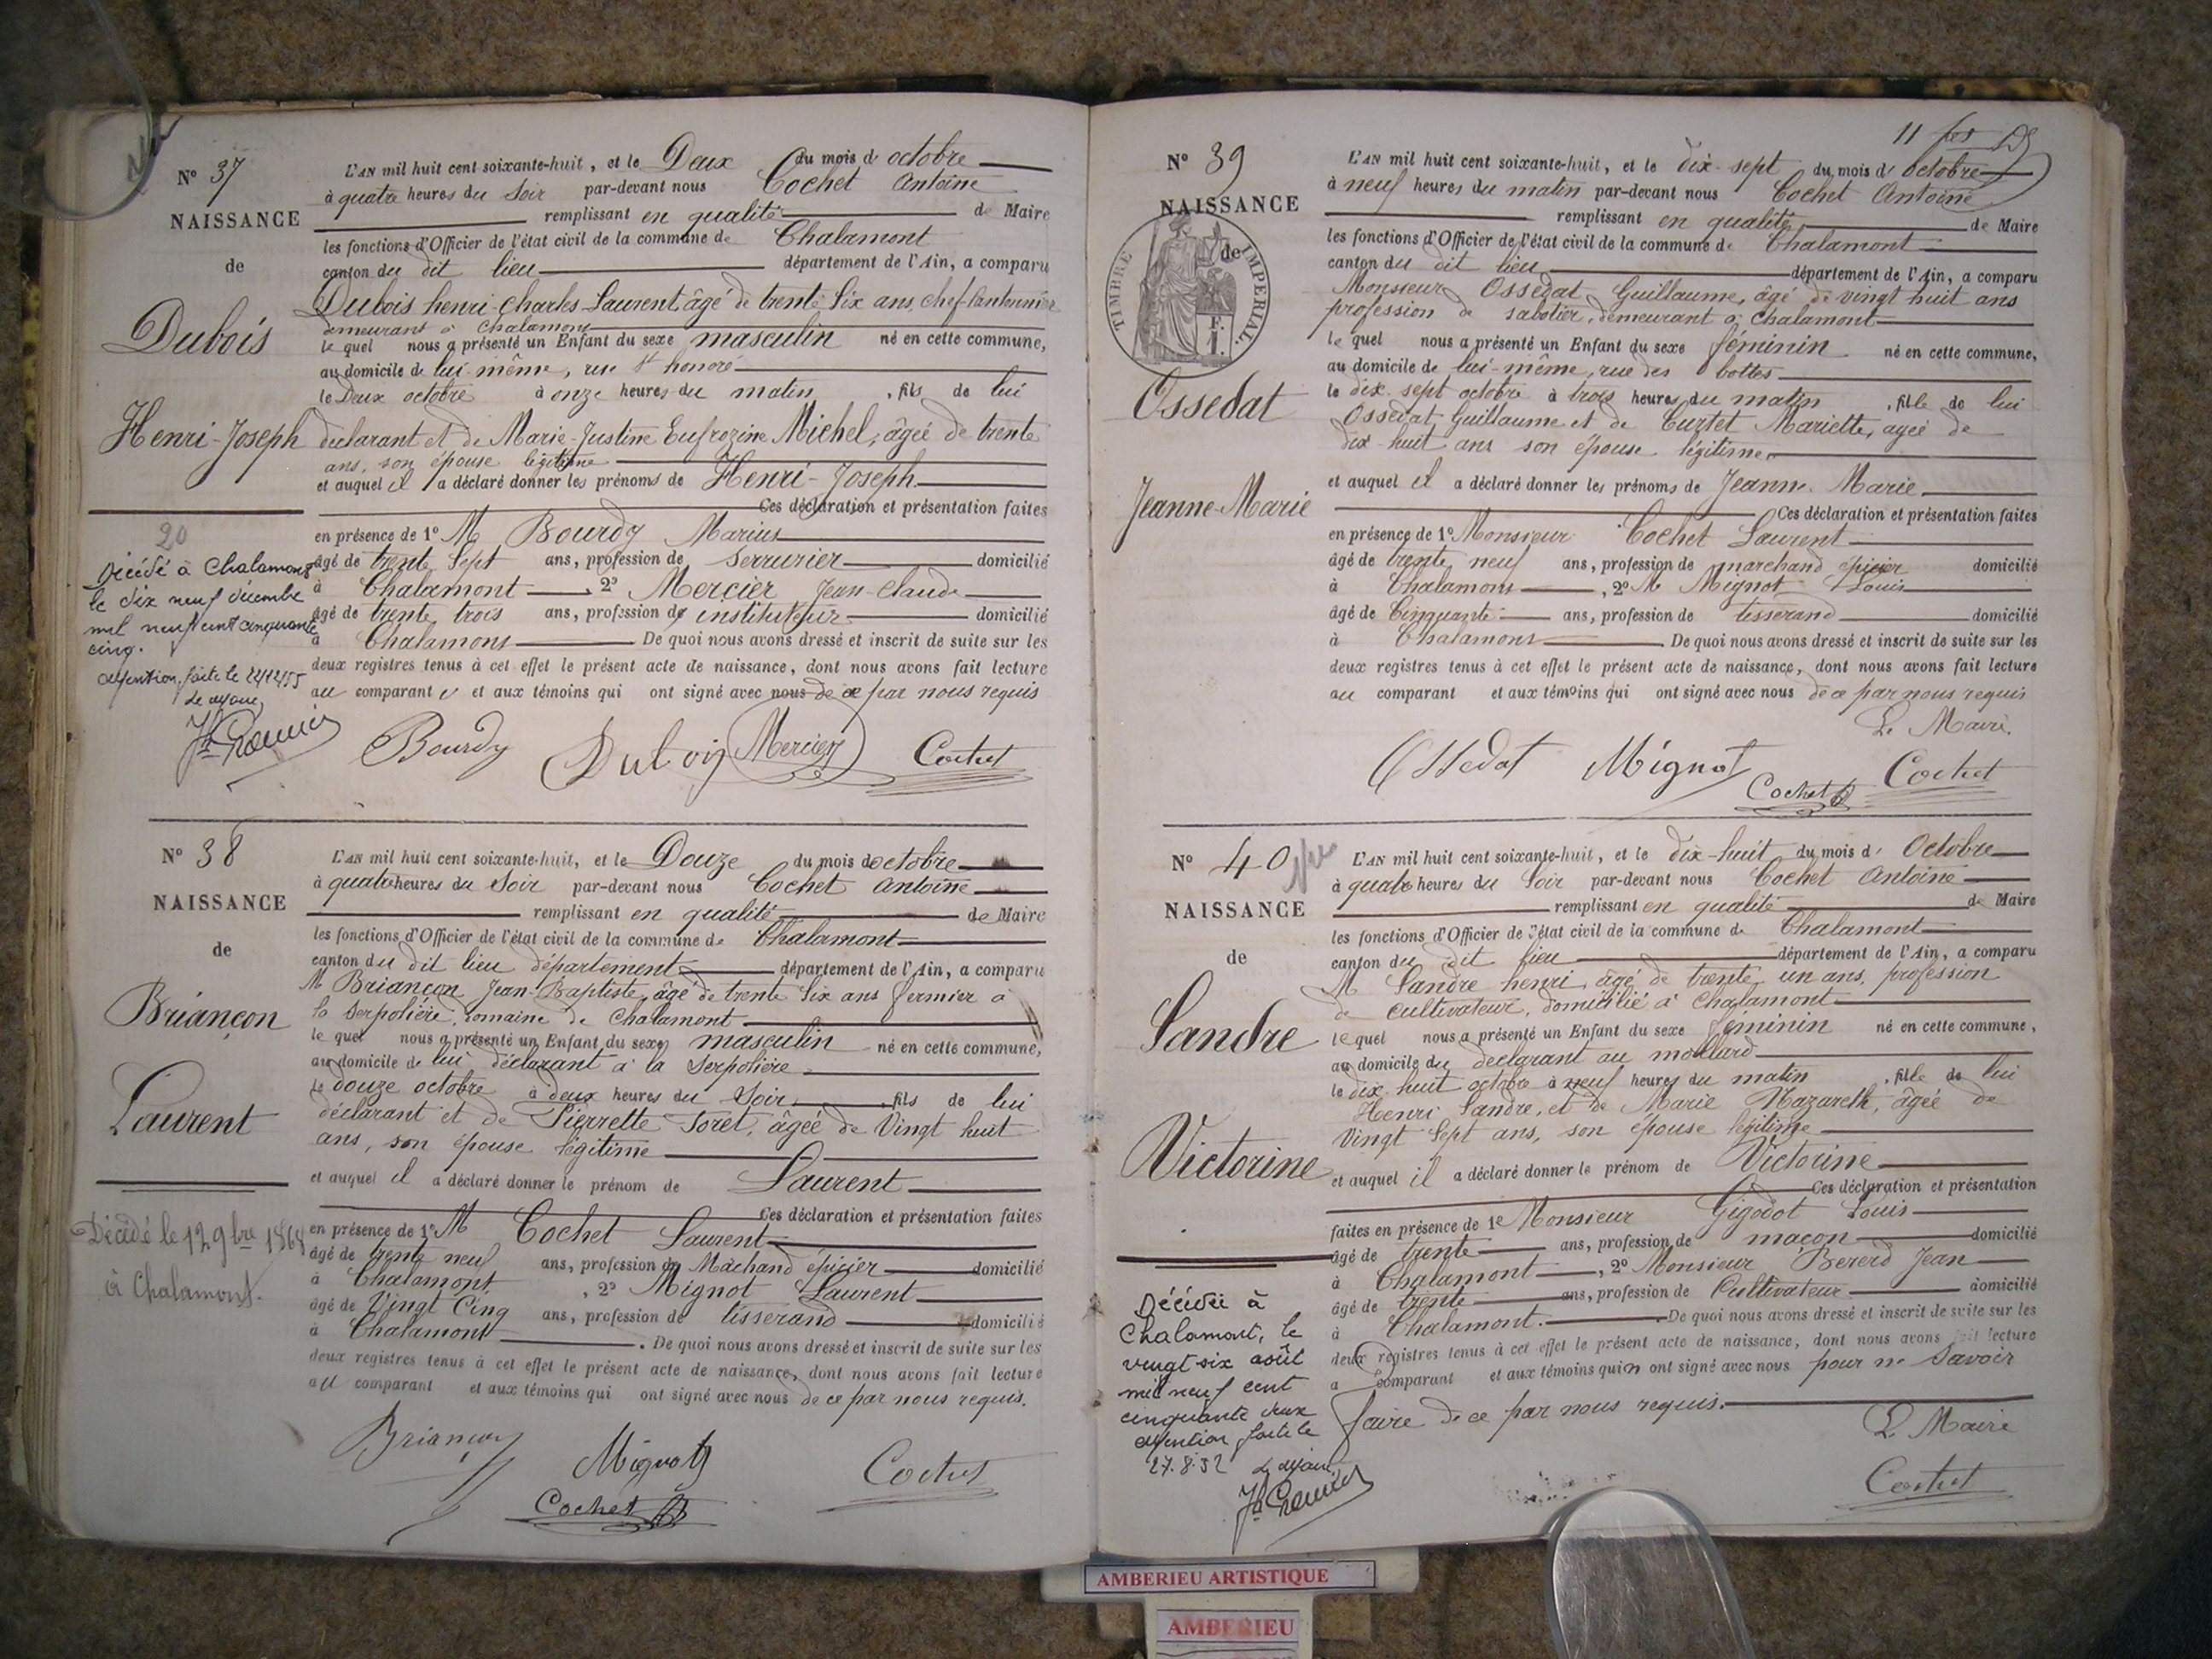 N° 37
NAISSANCE
de
Dubois
Henri-Joseph
20
Décédé à Chalamont
le dix neuf décembre
mil neuf cent cinquante
cinq.
Mention faite le 21/12/55
Le Maire,
L'AN mil huit cent soixante-huit, et le Deux du mois d'octobre
à quatre heures du Soir par-devant nous Cochet Antoine
remplissant en qualité de Maire
les fonctions d'Officier de l'état civil de la commune de Chalamont
canton du dit lieu département de l'Ain, a comparu
Dubois henri-charles-Laurent, âgé de trente Six ans, chef-Cantonnier
demeurant à Chalamont
le quel nous a présenté un Enfant du sexe masculin né en cette commune,
au domicile de lui-même, rue St honoré
le Deux octobre à onze heures du matin, fils de lui
déclarant et de Marie-Justine Eufrozine Michel, âgée de trente
ans, son épouse légitime
et auquel il a déclaré donner les prénoms de Henri-Joseph
Ces déclaration et présentation faites
en présence de 1° M Bourdy Marius
âgé de trente Sept ans, profession de serrurier domicilié
à Chalamont, 2° Mercier Jean-Claude
âgé de trente trois ans, profession de instituteur domicilié
à Chalamont De quoi nous avons dressé et inscrit de suite sur les
deux registres tenus à cet effet le présent acte de naissance, dont nous avons fait lecture
au comparant et aux témoins qui ont signé avec nous de ce par nous requis
Bourdy Dubois Mercier Cochet
N° 38
NAISSANCE
de
Briançon
Laurent
Décédé le 12 9bre 1868
à Chalamont.
L'AN mil huit cent soixante-huit, et le Douze du mois d'octobre
à quatre heures du Soir par-devant nous Cochet Antoine
remplissant en qualité de Maire
les fonctions d'Officier de l'état civil de la commune de Chalamont
canton du dit lieu département département de l'Ain, a comparu
M Briançon Jean-Baptiste, âgé de trente Six ans fermier à
la Serpolière, domaine de Chalamont
le quel nous a présenté un Enfant du sexe masculin né en cette commune,
au domicile de lui déclarant à la Serpolière
le douze octobre à deux heures du Soir, fils de lui
déclarant et de Pierrette Toret, âgée de Vingt huit
ans, son épouse légitime
et auquel il a déclaré donner le prénom de Laurent
Ces déclaration et présentation faites
en présence de 1° M Cochet Laurent
âgé de trente neuf ans, profession de Machand épicier domicilié
à Chalamont, 2° Mignot Laurent
âgé de Vingt Cinq ans, profession de tisserand domicilié
à Chalamont. De quoi nous avons dressé et inscrit de suite sur les
deux registres tenus à cet effet le présent acte de naissance, dont nous avons fait lecture
au comparant et aux témoins qui ont signé avec nous de ce par nous requis.
Briançon Mignot Cochet
Cochet
11
N° 39
NAISSANCE
de
TIMBRE IMPERIAL
Ossedat
Jeanne-Marie
L'AN mil huit cent soixante-huit, et le dix-sept du mois d'octobre
à neuf heures du matin par-devant nous Cochet Antoine
remplissant en qualité de Maire
les fonctions d'Officier de l'état civil de la commune de Chalamont
canton du dit lieu département de l'Ain, a comparu
Monsieur Ossedat Guillaume, âgé de vingt huit ans
profession de sabotier, demeurant à Chalamont
le quel nous a présenté un Enfant du sexe féminin né en cette commune,
au domicile de lui-même, rue des bottes
le dix-sept octobre à trois heures du matin, fille de lui
Ossedat Guillaume et de Curtet Mariette, agée de
dix-huit ans son épouse légitime
et auquel il a déclaré donner les prénoms de Jeanne Marie
Ces déclaration et présentation faites
en présence de 1° Monsieur Cochet Laurent
âgé de trente neuf ans, profession de marchand épicier domicilié
à Chalamont, 2° M Mignot Louis
âgé de Cinquante ans, profession de tisserand domicilié
à Chalamont. De quoi nous avons dressé et inscrit de suite sur les
deux registres tenus à cet effet le présent acte de naissance, dont nous avons fait lecture
au comparant et aux témoins qui ont signé avec nous de ce par nous requis
Le Maire.
Ossedat Mignot Cochet Cochet
N° 40
NAISSANCE
de
Sandre
Victorine
Décédée à
Chalamont, le
vingt six août
mil neuf cent
cinquante deux
Mention faite le
27.8.52 Le Maire,
L'AN mil huit cent soixante-huit, et le dix-huit du mois d'Octobre
à quatre heures du Soir par-devant nous Cochet Antoine
remplissant en qualité de Maire
les fonctions d'Officier de l'état civil de la commune de Chalamont
canton du dit lieu département de l'Ain, a comparu
M Sandre henri, âgé de trente un ans, profession
de cultivateur, domicilié à Chalamont
le quel nous a présenté un Enfant du sexe féminin né en cette commune,
au domicile du déclarant au mollard
le dix-huit octobre à neuf heures du matin, fille de lui
Henri Sandre, et de Marie Nazareth, âgée de
Vingt Sept ans, son épouse légitime
et auquel il a déclaré donner le prénom de Victorine
Ces déclaration et présentation
faites en présence de 1° Monsieur Gigodot Louis
âgé de trente ans, profession de maçon domicilié
à Chalamont, 2° Monsieur Bererd Jean
âgé de trente ans, profession de Cultivateur domicilié
à Chalamont. De quoi nous avons dressé et inscrit de suite sur les
deux registres tenus à cet effet le présent acte de naissance, dont nous avons fait lecture
a comparant et aux témoins qui n ont signé avec nous pour ne Savoir
faire de ce par nous requis.
Le Maire
Cochet
AMBERIEU ARTISTIQUE
AMBERIEU